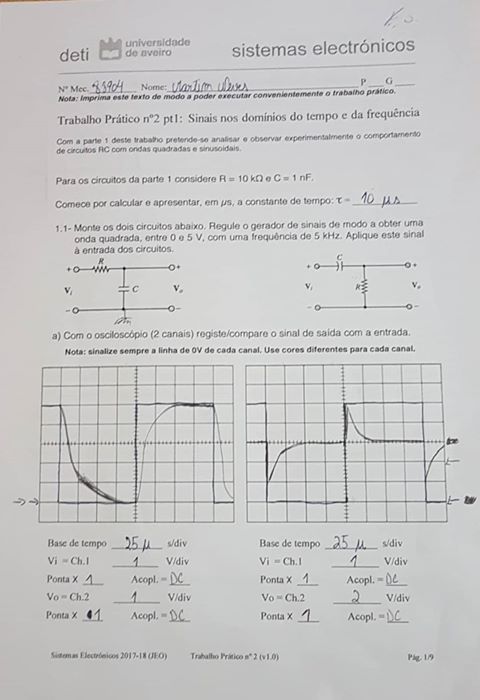 deti universidade de aveiro sistemas electrónicos
Nº Mec. 85904 Nome: P G
Nota: Imprima este texto de modo a poder executar convenientemente o trabalho prático.
Trabalho Prático nº2 pt1: Sinais nos domínios do tempo e da frequência
Com a parte 1 deste trabalho pretende-se analisar e observar experimentalmente o comportamento
de circuitos RC com ondas quadradas e sinusoidais.
Para os circuitos da parte 1 considere R = 10 kΩ e C = 1 nF.
Comece por calcular e apresentar, em µs, a constante de tempo: τ = 10 µs
1.1- Monte os dois circuitos abaixo. Regule o gerador de sinais de modo a obter uma
onda quadrada, entre 0 e 5 V, com uma frequência de 5 kHz. Aplique este sinal
à entrada dos circuitos.
+ R + + C +
Vi C Vo Vi R Vo
- - - -
a) Com o osciloscópio (2 canais) registe/compare o sinal de saída com a entrada.
Nota: sinalize sempre a linha de 0V de cada canal. Use cores diferentes para cada canal.
Base de tempo 25 µ s/div Base de tempo 25 µ s/div
Vi = Ch.1 1 V/div Vi = Ch.1 1 V/div
Ponta X 1 Acopl. = DC Ponta X 1 Acopl. = DC
Vo = Ch.2 1 V/div Vo = Ch.2 2 V/div
Ponta X 1 Acopl. = DC Ponta X 1 Acopl. = DC
Sistemas Electrónicos 2017-18 (JEO) Trabalho Prático nº 2 (v1.0) Pág. 1/9